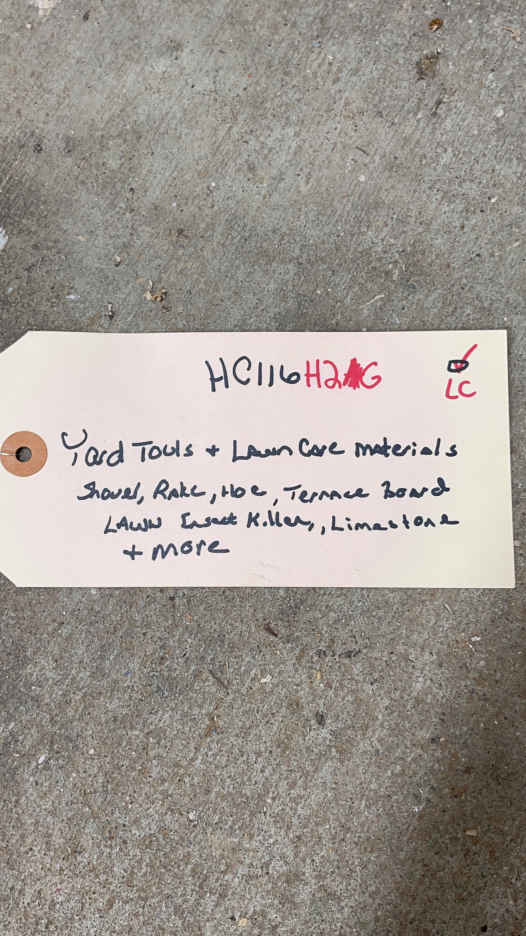 HC116H2G
LC
Yard Tools + Lawn Care materials
Shovel, Rake, Hoe, Terrace Board
LAWN Insect Killer, Limestone
+ more